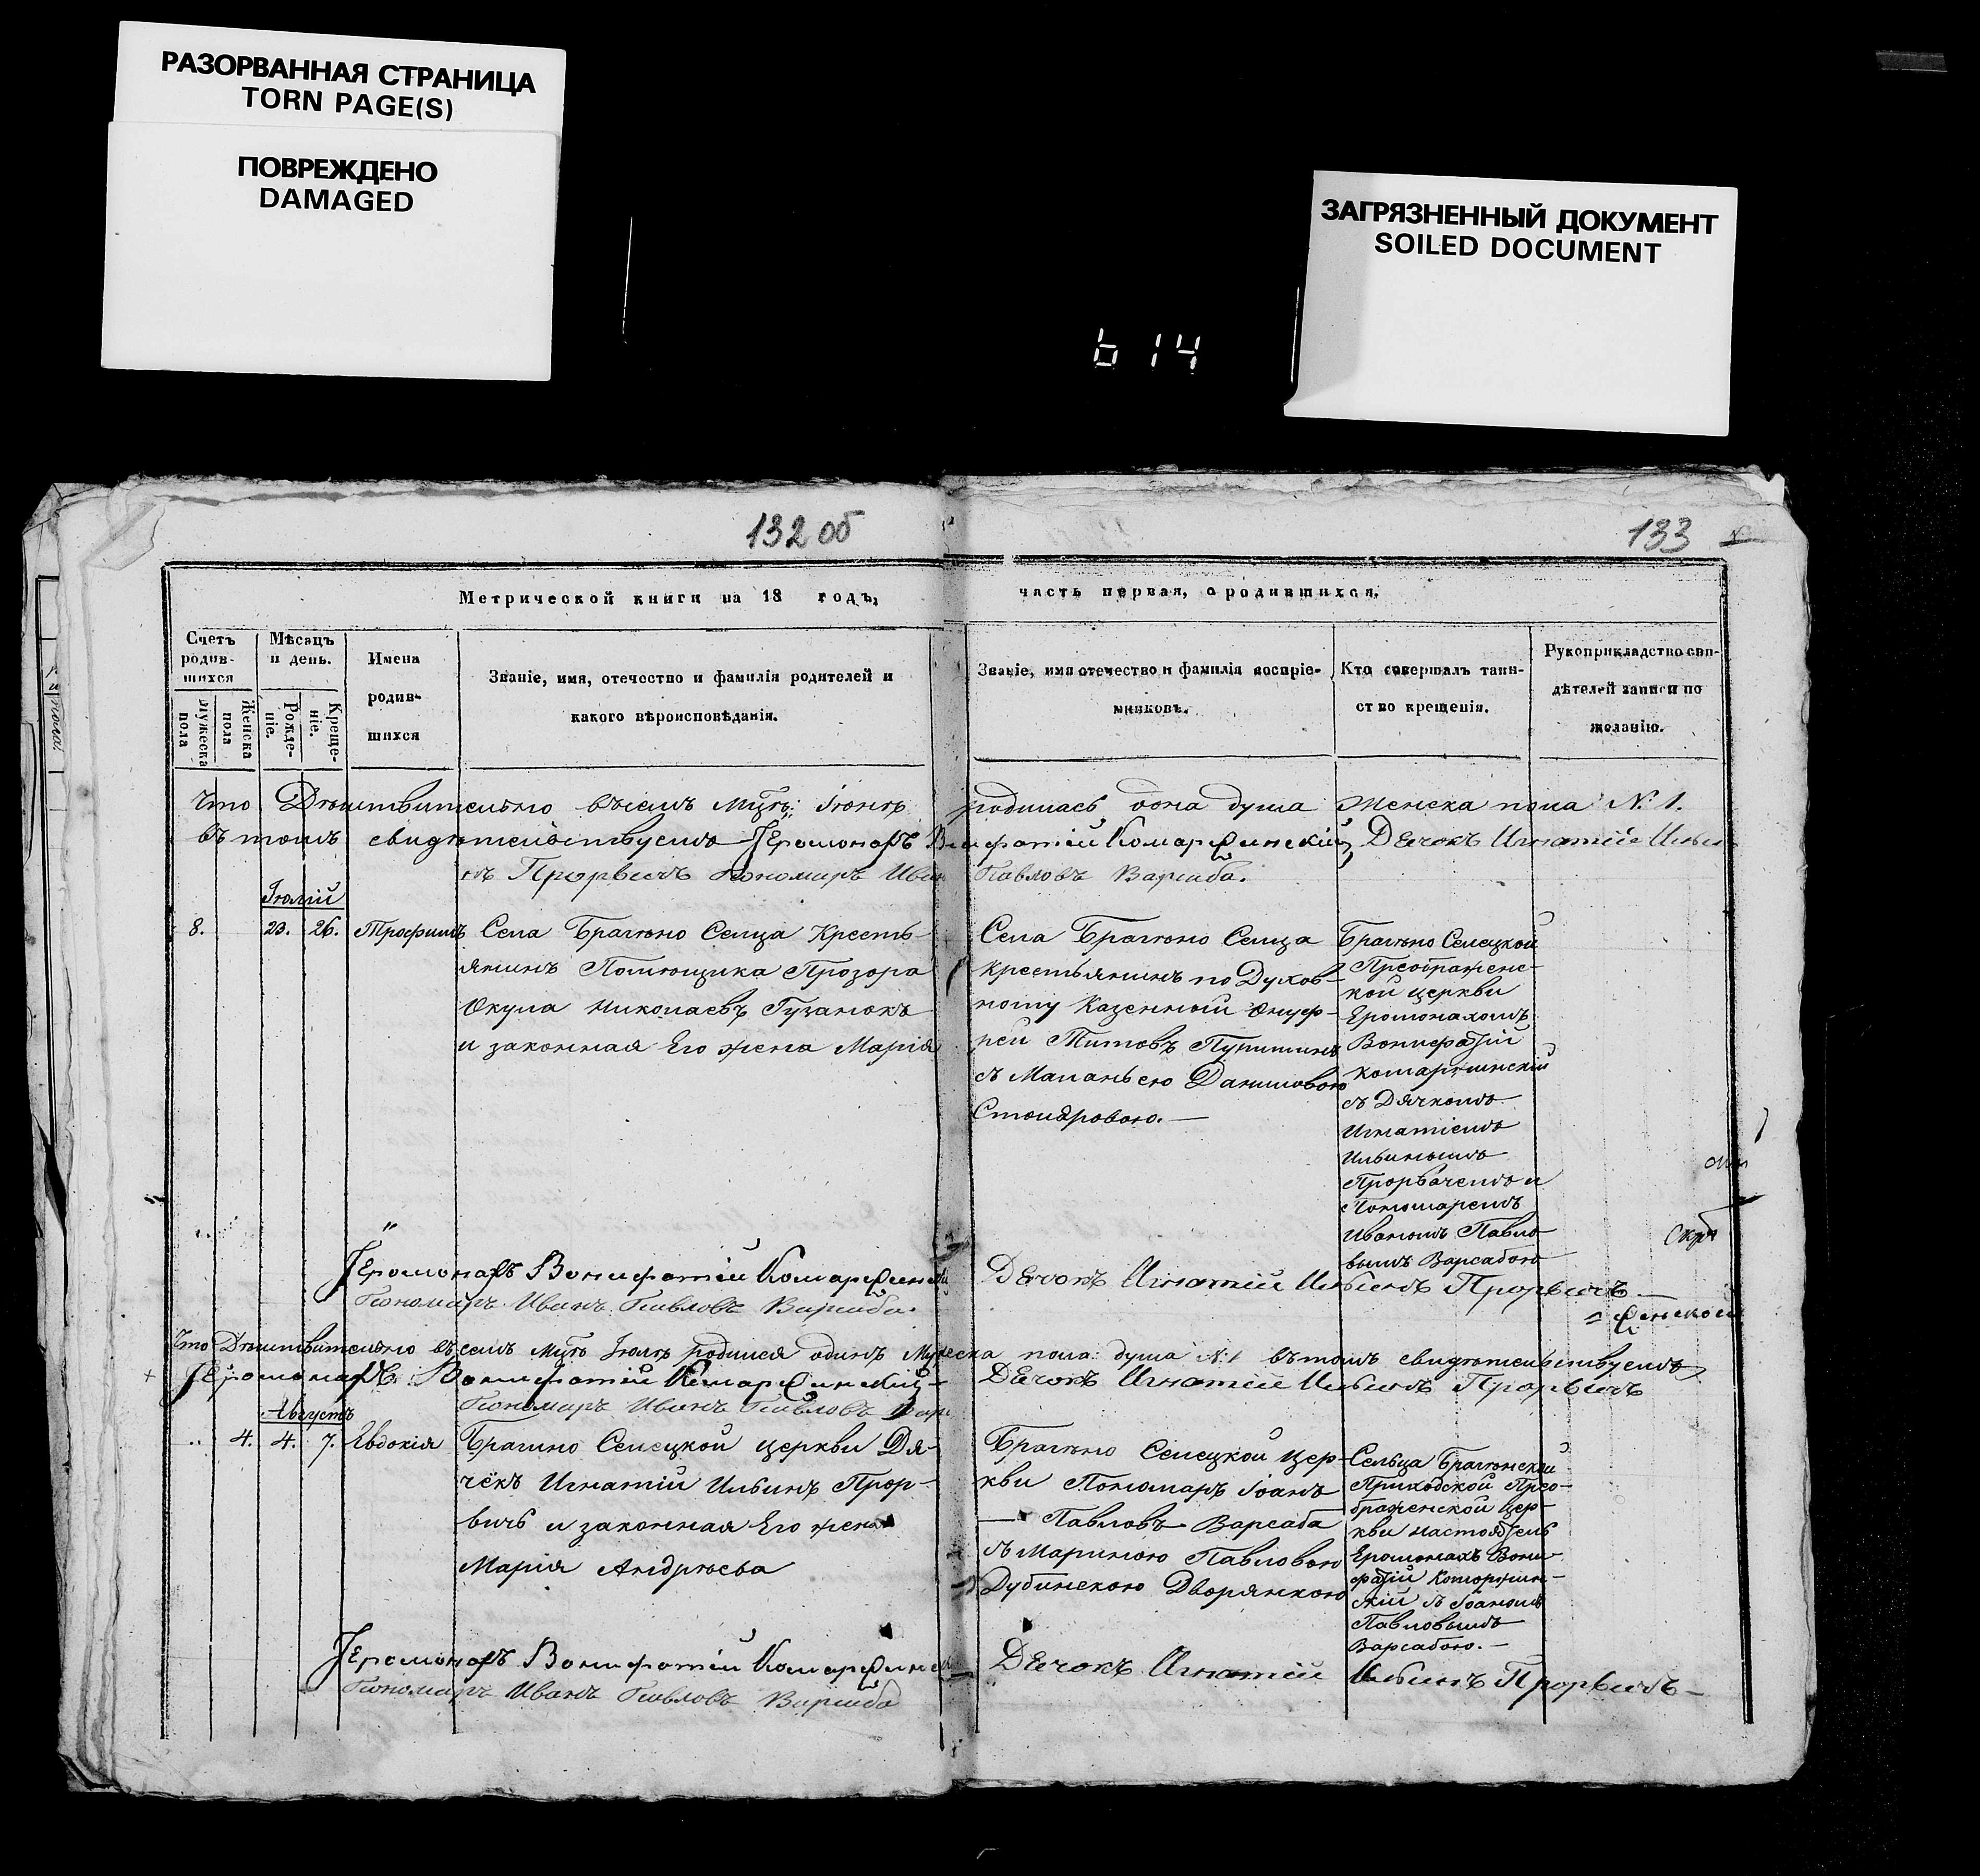 РАЗОРВАННАЯ СТРАНИЦА
TORN PAGE(S)
ПОВРЕЖДЕНО
DAMAGED
ЗАГРЯЗНЕННЫЙ ДОКУМЕНТ
SOILED DOCUMENT
614
132 об
133
Метрической книги на 18 годъ,
часть первая, о родившихся.
Счетъ родив-шихся
Мужеска пола
Женска пола
Мѣсяцъ и день.
Рожде-ніе.
Креще-ніе.
Имена родив-шихся
Званіе, имя, отечество и фамилія родителей и
какого вѣроисповѣданія.
Званіе, имя отечество и фамилія воспріе-
мниковъ.
Кто совершалъ таин-
ство крещенія.
Рукоприкладство сви-
дѣтелей записи по
желанію.
Что Дѣйствительно въ семъ Іюнѣ родилась одна душа женска пола N. 1.
въ томъ свидѣтельствуемъ Іеромонахъ Дечокъ Игнатій
Прорвичъ Пономаръ Павловъ Варсаба.
Іюлій
8. 23. 26. Трофимъ
Села Брагѣно Селца Кресть-
янинъ Помѣщика Прозора
Окула Николаевъ Гузанокъ
и законная Его жена Марія
Села Брагѣно Селца
крестьянинъ по Духов-
ному Казенный Онуф-
рей Титовъ
съ Маланьею Даниловою
Брагѣно Селецкой
Преображенс-
кой церкви
Еромонахомъ
Вонифатій
Комаржинскій
съ Дячкомъ
Игнатіемъ
Ильинымъ
Прорвичемъ и
Пономаремъ
Иваномъ Павло
вымъ Варсабою
Іеромонахъ Вонифатій Дечокъ Игнатій Ильинъ Прорвичъ
Пономаръ Иванъ Павловъ Варсаба.
Что Дѣйствительно въ семъ Іюлѣ родился одинъ Мужеска пола душа N. 1 въ томъ свидѣтельствуемъ
Іеромонахъ Вонифатій Дечокъ Игнатій Ильинъ Прорвичъ
Пономаръ Иванъ Павловъ
Августъ
4. 4. 7. Евдокія
Брагино Селецкой церкви Дя-
чёкъ Игнатій Ильинъ Прор-
вичъ и законная Его жена
Марія Андрѣева
Брагѣно Селецкой цер-
кви Пономаръ Іоанъ
Павловъ Варсаба
съ Мариною Павловою
Дубинскою Дворянкою
Сельца Брагѣнской
Приходской Прео-
браженской цер-
кви настоятель
Еромонахъ Вони-
фатій Комаржин-
скій съ Іоаномъ
Павловымъ
Варсабою.
Іеромонахъ Вонифатій Дечокъ Игнатій Ильинъ Прорвичъ
Пономаръ Иванъ Павловъ Варсаба